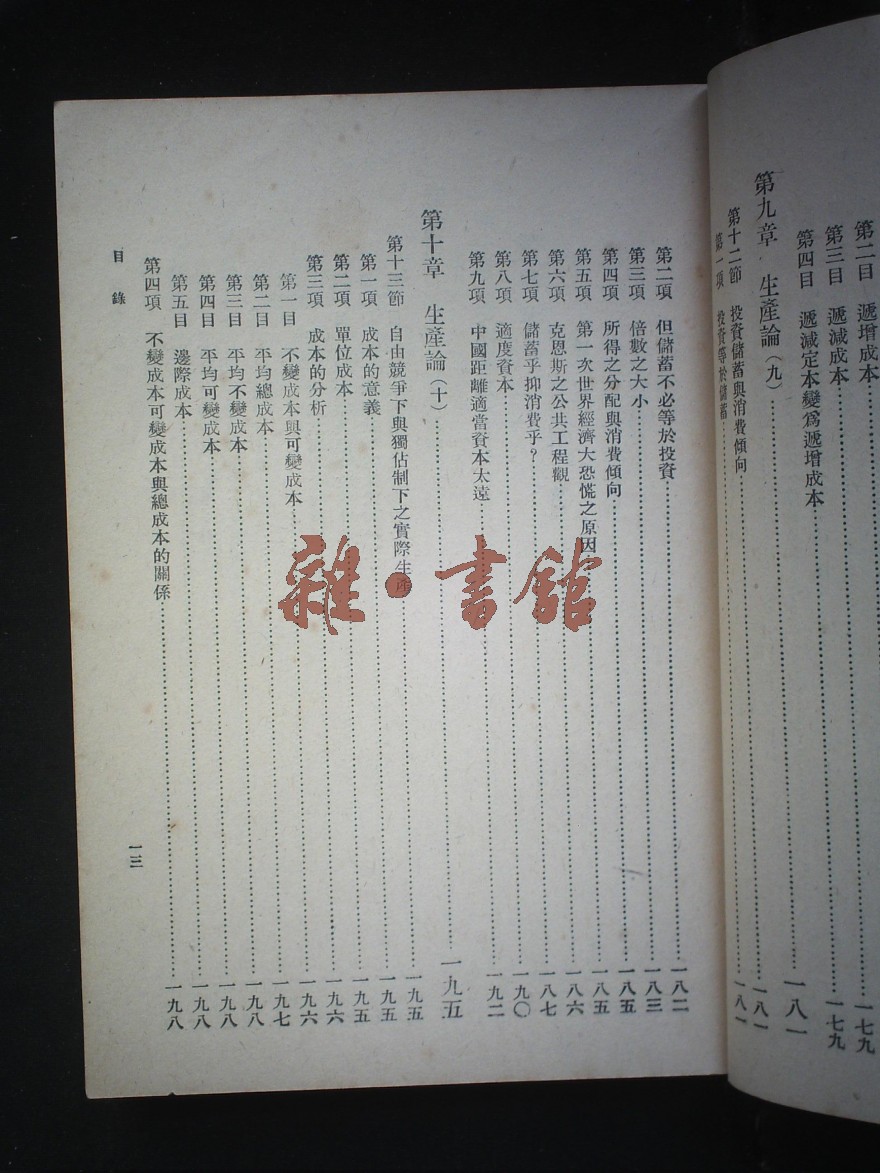 第二目 遞增成本
第三目 遞減成本……一七九
第四目 遞減定本變爲遞增成本……一七九
第九章 生產論(九)……一八一
第十二節 投資儲蓄與消費傾向……一八一
第一項 投資等於儲蓄……一八一
第二項 但儲蓄不必等於投資……一八二
第三項 倍數之大小……一八三
第四項 所得之分配與消費傾向……一八五
第五項 第一次世界經濟大恐慌之原因……一八五
第六項 克恩斯之公共工程觀……一八六
第七項 儲蓄乎抑消費乎?……一八七
第八項 適度資本……一九〇
第九項 中國距離適當資本太遠……一九二
第十章 生產論(十)……一九五
第十三節 自由競爭下與獨佔制下之實際生產……一九五
第一項 成本的意義……一九五
第二項 單位成本……一九五
第三項 成本的分析……一九六
第一目 不變成本與可變成本……一九六
第二目 平均總成本……一九七
第三目 平均不變成本……一九八
第四目 平均可變成本……一九八
第五目 邊際成本……一九八
第四項 不變成本可變成本與總成本的關係……一九八
目錄
一三
雜·書館